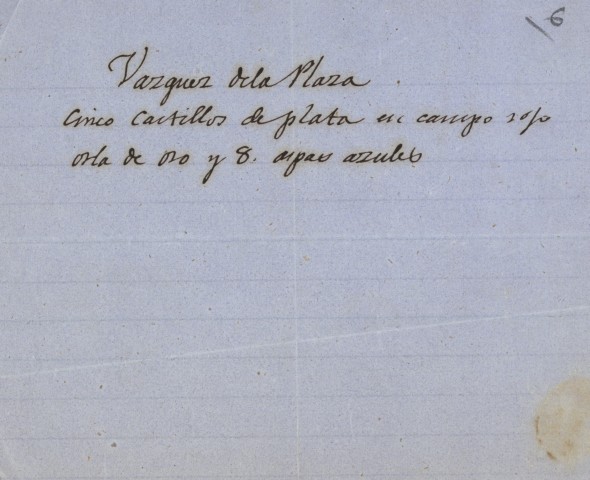 16
Vazquez de la Plaza.
Cinco Castillos de plata en campo rojo
orla de oro y 8. aspas azules